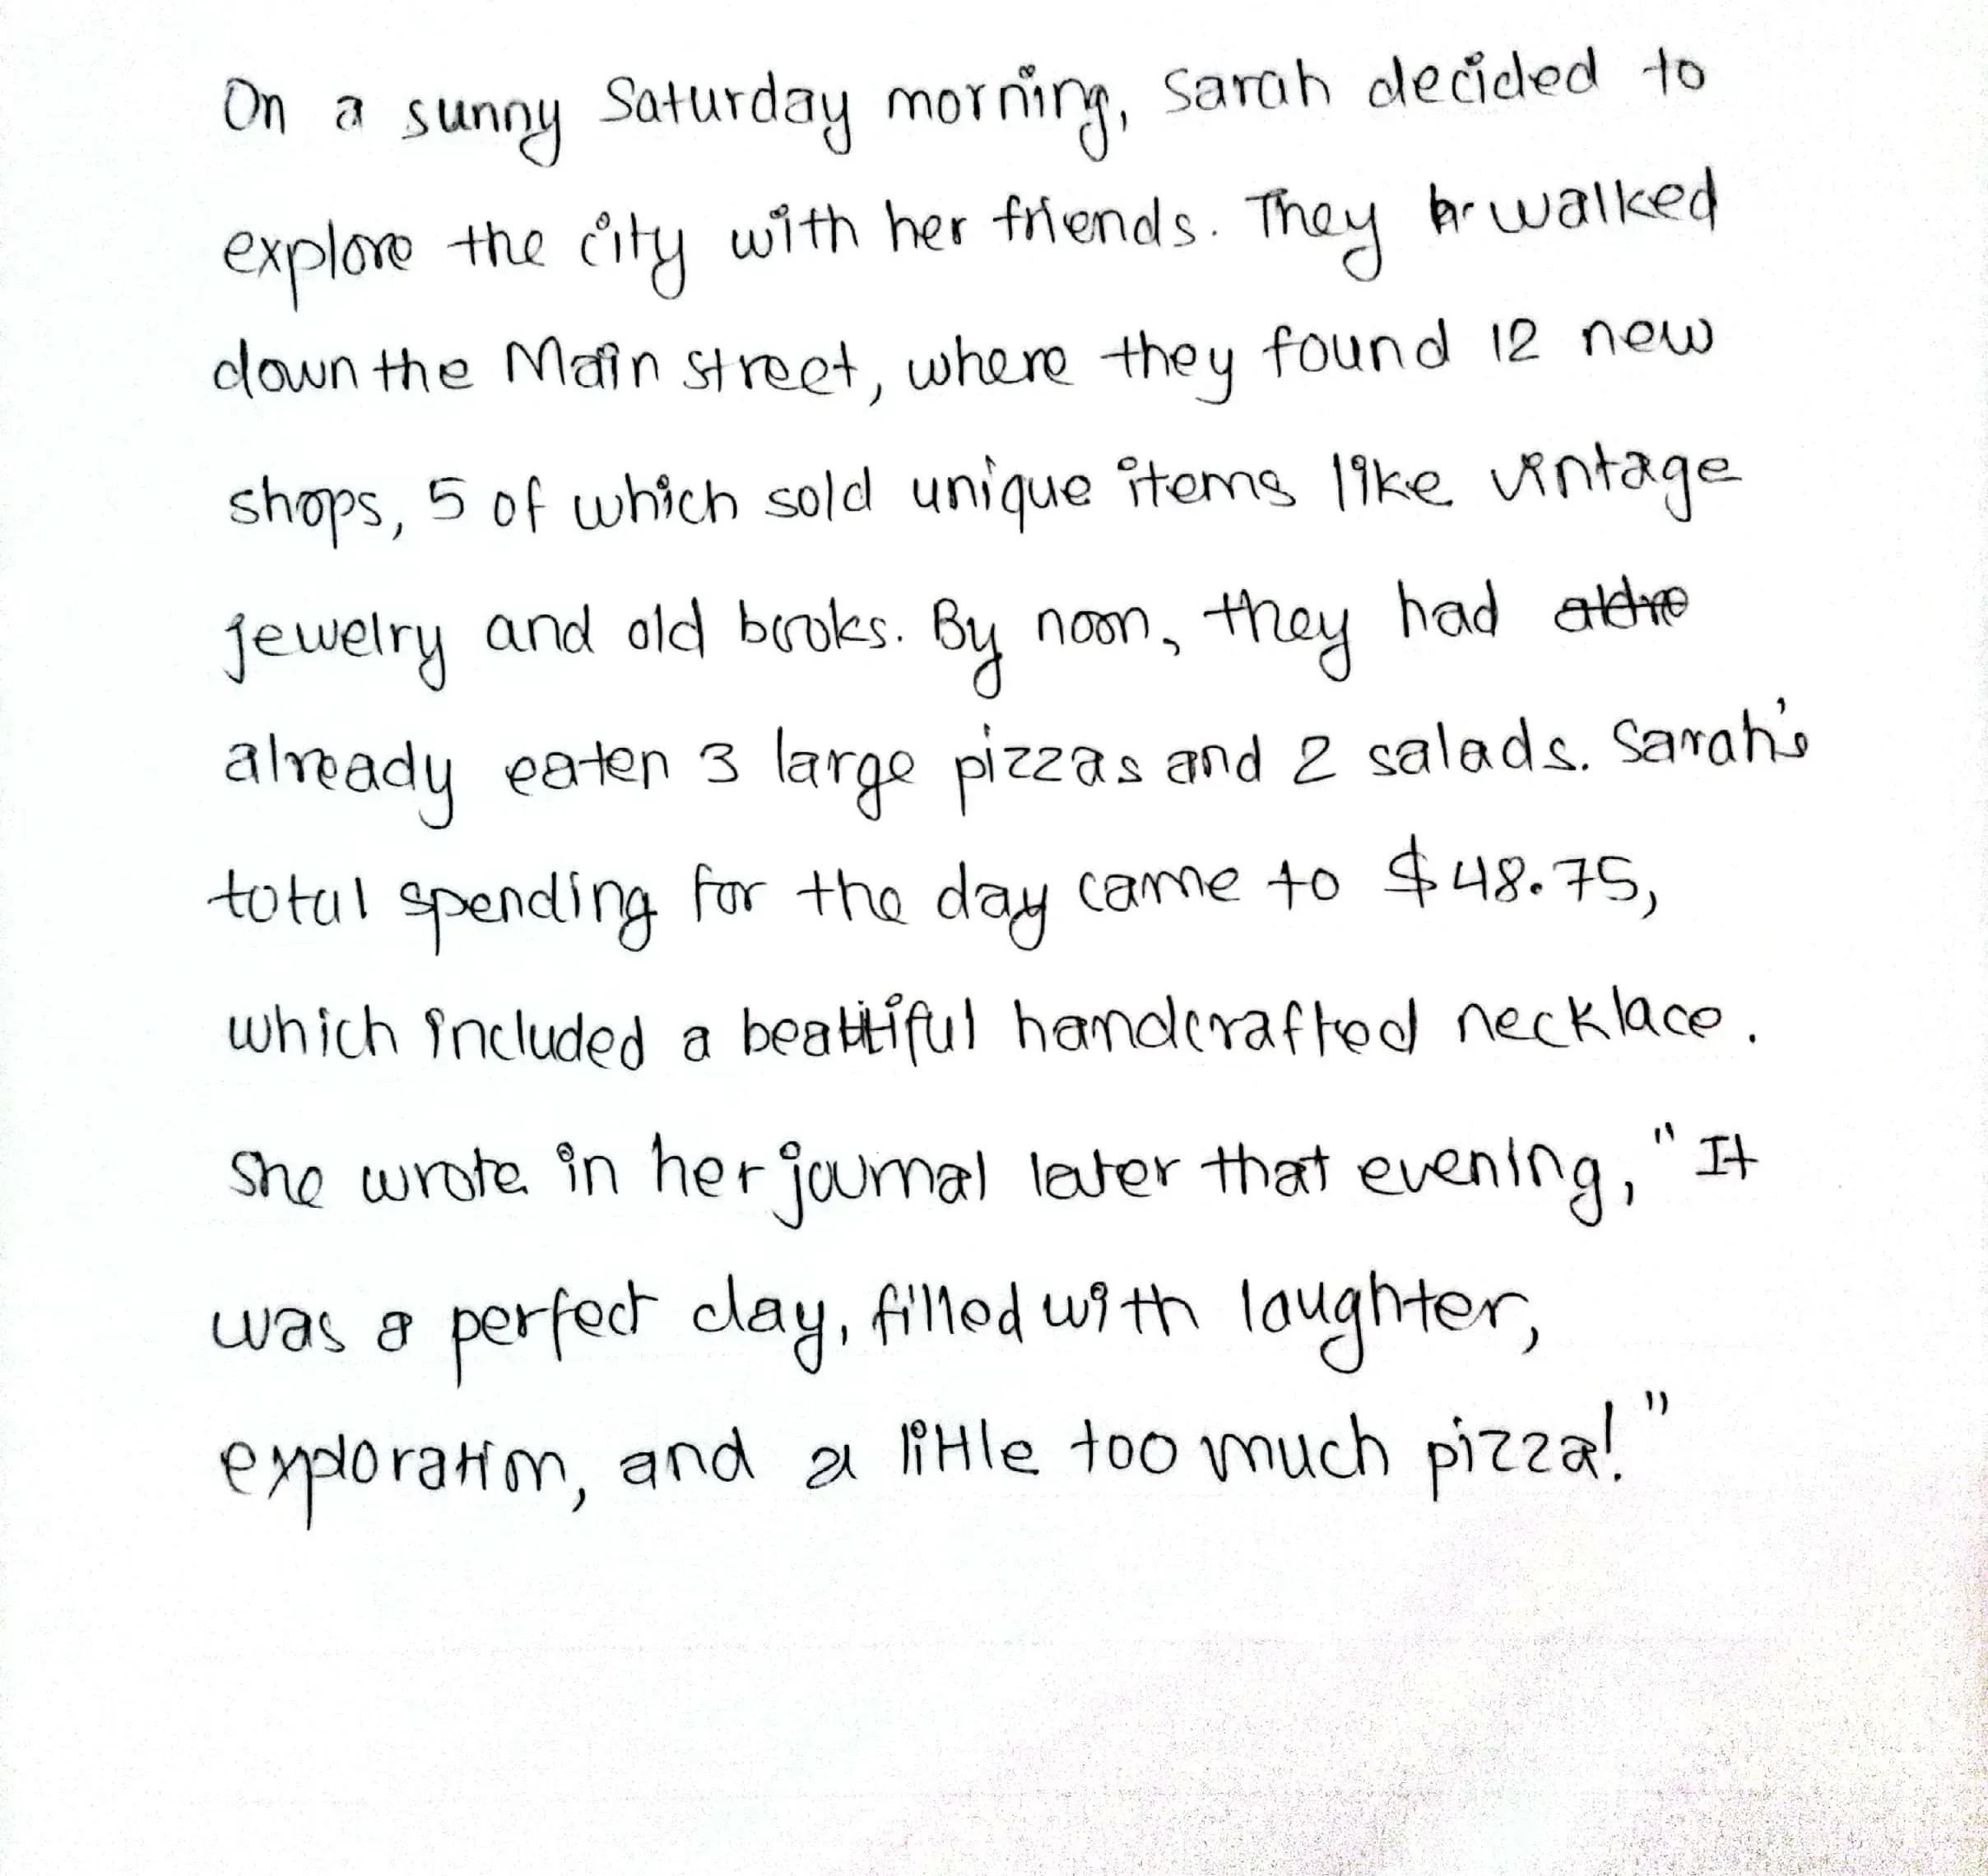 On a sunny Saturday morning, Sarah decided to
explore the city with her friends. They walked
down the Main street, where they found 12 new
shops, 5 of which sold unique items like vintage
jewelry and old books. By noon, they had
already eaten 3 large pizzas and 2 salads. Sarah's
total spending for the day came to $48.75,
which included a beautiful handcrafted necklace.
She wrote in her journal later that evening, "It
was a perfect day, filled with laughter,
exploration, and a little too much pizza!"